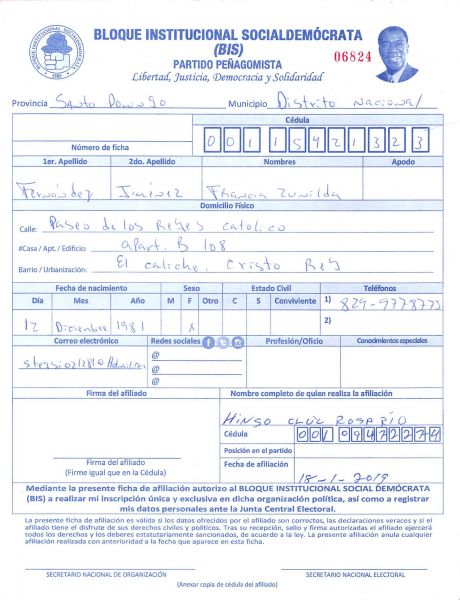 BLOQUE INSTITUCIONAL SOCIALDEMÓCRATA
(BIS)
PARTIDO PEÑAGOMISTA
Libertad, Justicia, Democracia y Solidaridad
06824
Provincia Santo Domingo Municipio Distrito Nacional
Cédula
Número de ficha 001 1592132 3
1er. Apellido 2do. Apellido Nombres Apodo
Fernández Jiménez Francia Zunilda
Domicilio Físico
Calle: Paseo de los Reyes Catolico
#Casa / Apt. / Edificio: apart. B 108
Barrio / Urbanización: El caliche, Cristo Rey
Fecha de nacimiento Sexo Estado Civil Teléfonos
Día Mes Año M F Otro C S Conviviente 1) 829-9778773
12 Diciembre 1981 X 2)
Correo electrónico Redes sociales Profesión/Oficio Conocimientos especiales
@
@
@
Firma del afiliado Nombre completo de quien realiza la afiliación
Cruz Rosario
Cédula 001 0947227 4
Posición en el partido
Firma del afiliado
(Firme igual que en la Cédula)
Fecha de afiliación 18-1-2019
Mediante la presente ficha de afiliación autorizo al BLOQUE INSTITUCIONAL SOCIAL DEMÓCRATA
(BIS) a realizar mi inscripción única y exclusiva en dicha organización política, así como a registrar
mis datos personales ante la Junta Central Electoral.
La presente ficha de afiliación es válida si los datos ofrecidos por el afiliado son correctos, las declaraciones veraces y si el
afiliado tiene el disfrute de sus derechos civiles y políticos. Tras su recepción, sello y firma autorizadas el afiliado ejercerá
todos los derechos y los deberes estatutariamente sancionados, de acuerdo a la ley. La presente afiliación anula cualquier
afiliación realizada con anterioridad a la fecha que aparece en esta ficha.
SECRETARIO NACIONAL DE ORGANIZACIÓN SECRETARIO NACIONAL ELECTORAL
(Anexar copia de cédula del afiliado)